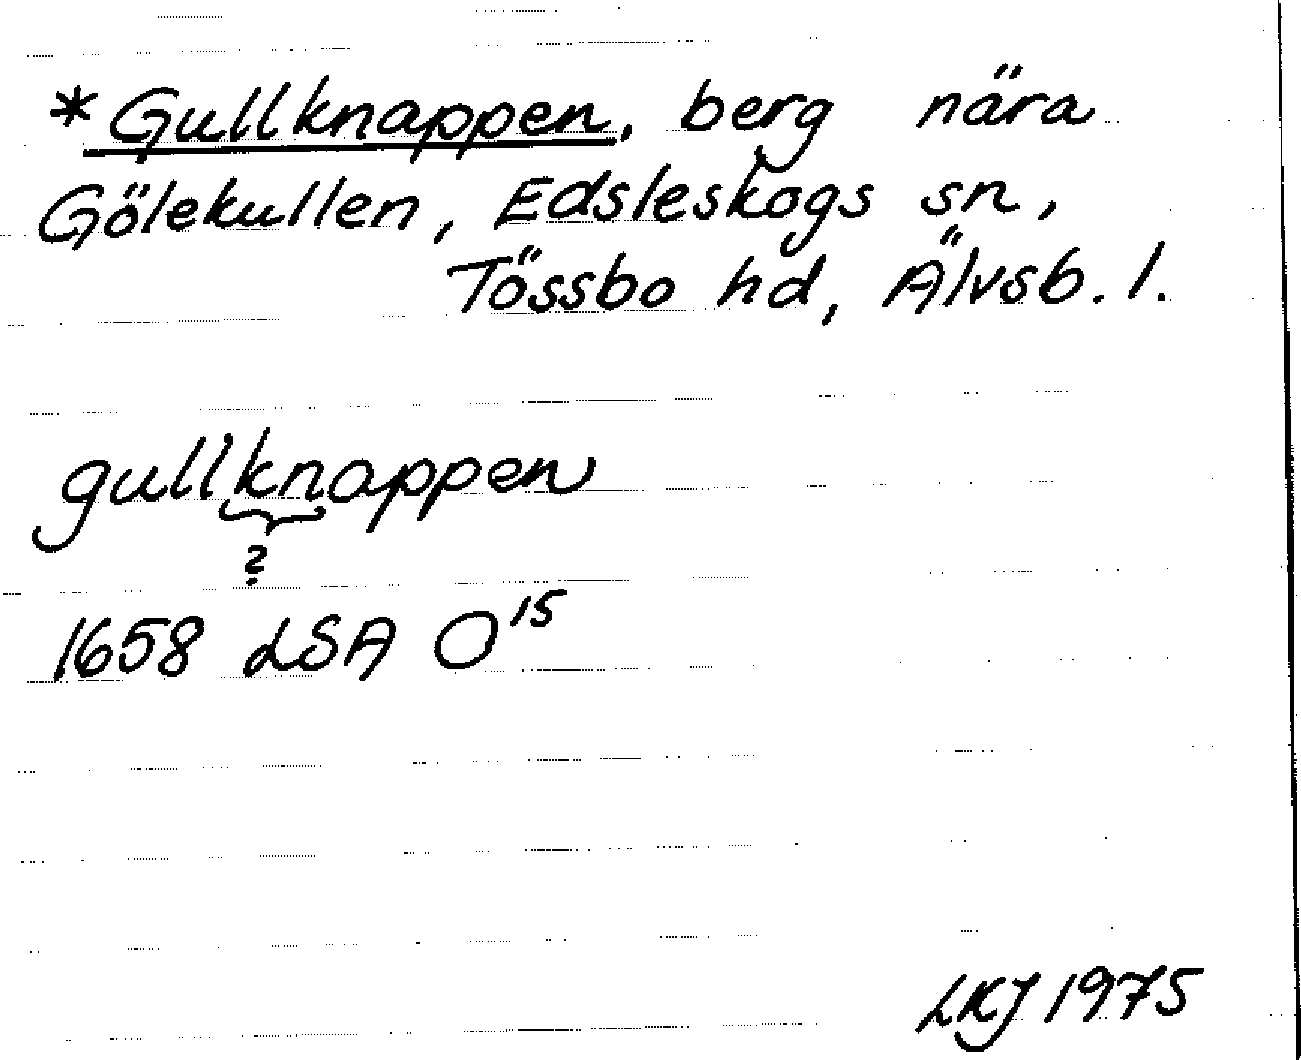 *Gullknappen, berg nära
Gölekullen, Edsleskogs sn,
Tössbo hd, Älvsb. l.
gullknappen
?
1658 LSA O15
LKJ 1975